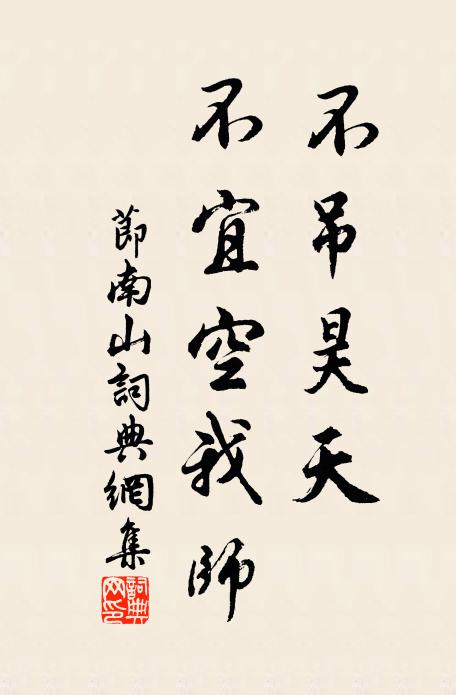 不吊昊天
不宜空我師
節南山詞典網集
詞典
网印